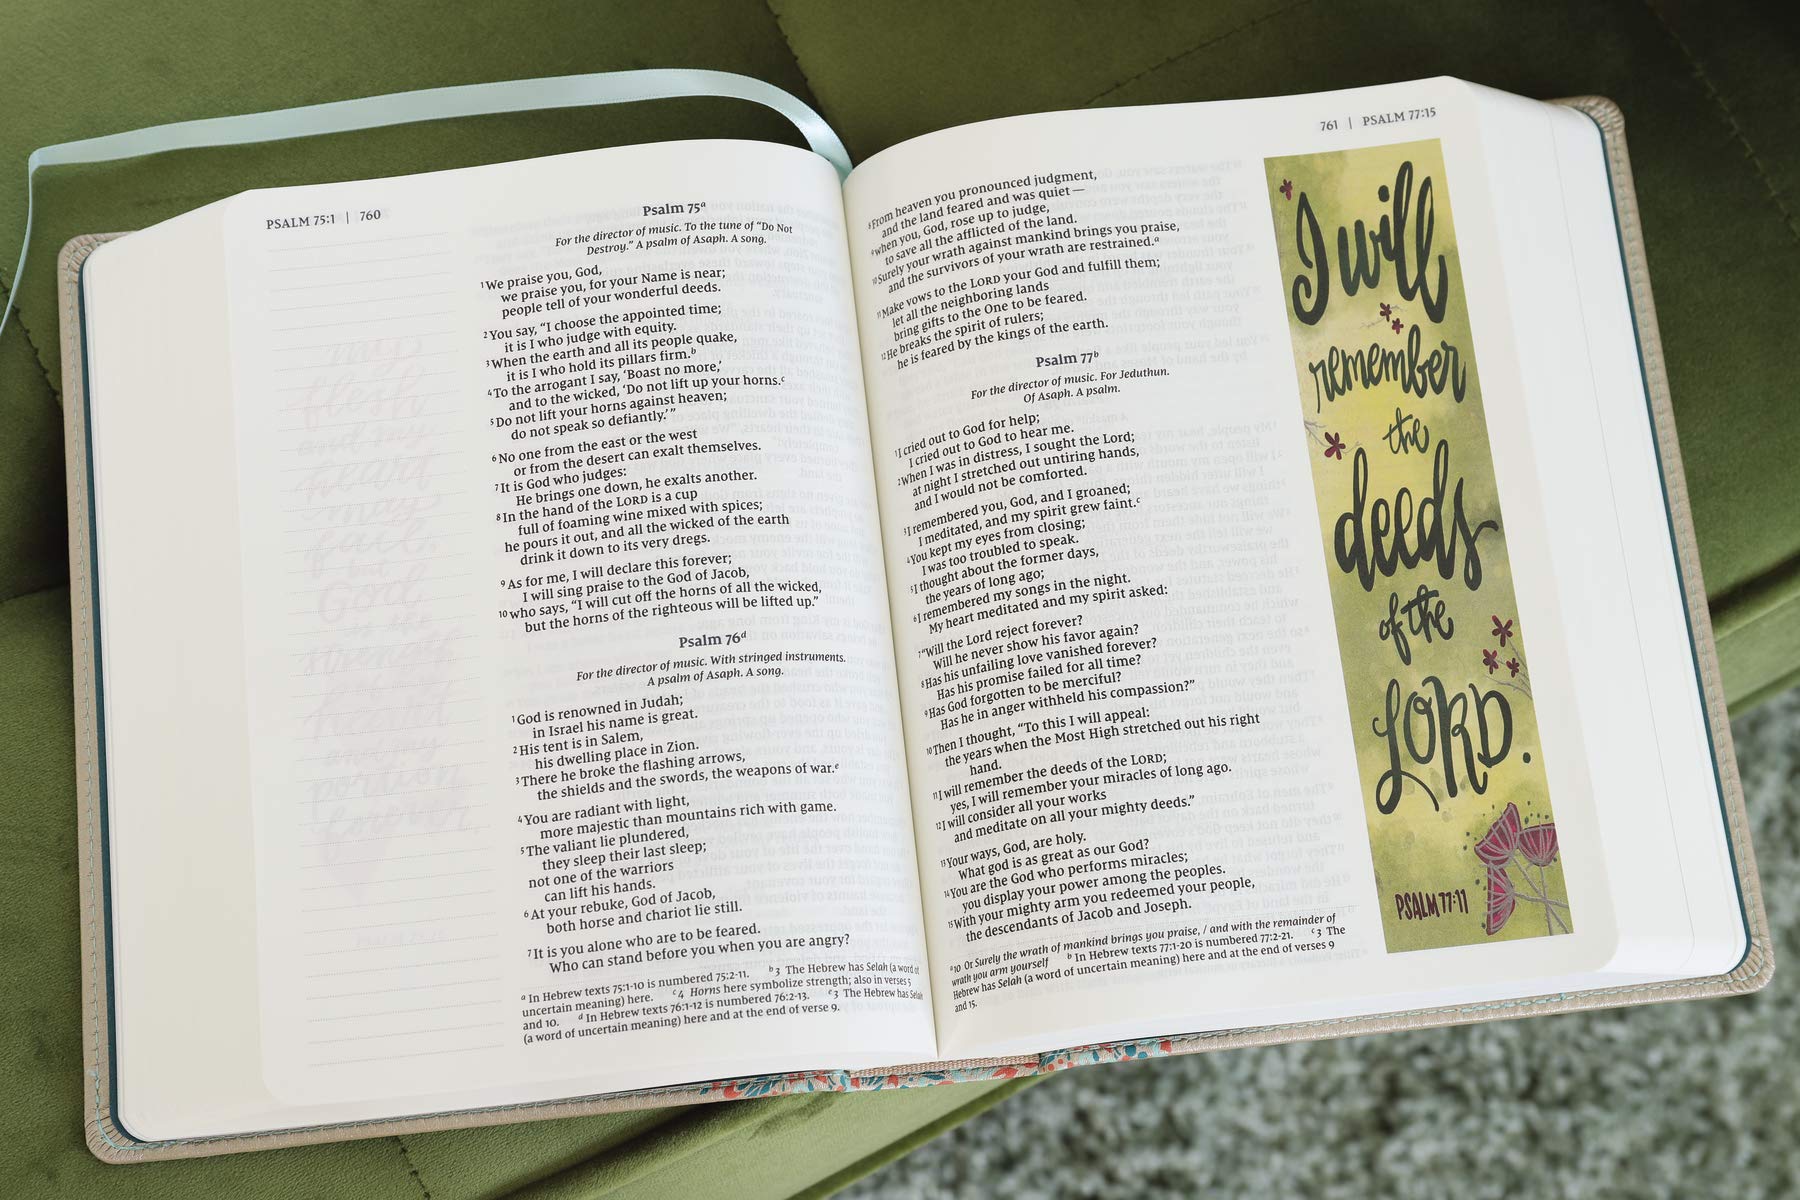 PSALM 75:1 | 760
Psalm 75a
For the director of music. To the tune of “Do Not
Destroy.” A psalm of Asaph. A song.
1We praise you, God,
we praise you, for your Name is near;
people tell of your wonderful deeds.
2You say, “I choose the appointed time;
it is I who judge with equity.
3When the earth and all its people quake,
it is I who hold its pillars firm.b
4To the arrogant I say, ‘Boast no more,’
and to the wicked, ‘Do not lift up your horns.c
5Do not lift your horns against heaven;
do not speak so defiantly.’”
6No one from the east or the west
or from the desert can exalt themselves.
7It is God who judges:
He brings one down, he exalts another.
8In the hand of the LORD is a cup
full of foaming wine mixed with spices;
he pours it out, and all the wicked of the earth
drink it down to its very dregs.
9As for me, I will declare this forever;
I will sing praise to the God of Jacob,
10who says, “I will cut off the horns of all the wicked,
but the horns of the righteous will be lifted up.”
Psalm 76d
For the director of music. With stringed instruments.
A psalm of Asaph. A song.
1God is renowned in Judah;
in Israel his name is great.
2His tent is in Salem,
his dwelling place in Zion.
3There he broke the flashing arrows,
the shields and the swords, the weapons of war.e
4You are radiant with light,
more majestic than mountains rich with game.
5The valiant lie plundered,
they sleep their last sleep;
not one of the warriors
can lift his hands.
6At your rebuke, God of Jacob,
both horse and chariot lie still.
7It is you alone who are to be feared.
Who can stand before you when you are angry?
a In Hebrew texts 75:1-10 is numbered 75:2-11. b 3 The Hebrew has Selah (a word of
uncertain meaning) here. c 4 Horns here symbolize strength; also in verses 5
and 10. d In Hebrew texts 76:1-12 is numbered 76:2-13. e 3 The Hebrew has Selah
(a word of uncertain meaning) here and at the end of verse 9.
761 | PSALM 77:15
8From heaven you pronounced judgment,
and the land feared and was quiet —
9when you, God, rose up to judge,
to save all the afflicted of the land.
10Surely your wrath against mankind brings you praise,
and the survivors of your wrath are restrained.a
11Make vows to the LORD your God and fulfill them;
let all the neighboring lands
bring gifts to the One to be feared.
12He breaks the spirit of rulers;
he is feared by the kings of the earth.
Psalm 77b
For the director of music. For Jeduthun.
Of Asaph. A psalm.
1I cried out to God for help;
I cried out to God to hear me.
2When I was in distress, I sought the Lord;
at night I stretched out untiring hands,
and I would not be comforted.
3I remembered you, God, and I groaned;
I meditated, and my spirit grew faint.c
4You kept my eyes from closing;
I was too troubled to speak.
5I thought about the former days,
the years of long ago;
6I remembered my songs in the night.
My heart meditated and my spirit asked:
7“Will the Lord reject forever?
Will he never show his favor again?
8Has his unfailing love vanished forever?
Has his promise failed for all time?
9Has God forgotten to be merciful?
Has he in anger withheld his compassion?”
10Then I thought, “To this I will appeal:
the years when the Most High stretched out his right
hand.
11I will remember the deeds of the LORD;
yes, I will remember your miracles of long ago.
12I will consider all your works
and meditate on all your mighty deeds.”
13Your ways, God, are holy.
What god is as great as our God?
14You are the God who performs miracles;
you display your power among the peoples.
15With your mighty arm you redeemed your people,
the descendants of Jacob and Joseph.
a 10 Or Surely the wrath of mankind brings you praise, / and with the remainder of
wrath you arm yourself b In Hebrew texts 77:1-20 is numbered 77:2-21. c 3 The
Hebrew has Selah (a word of uncertain meaning) here and at the end of verses 9
and 15.
I will
remember
the
deeds
of the
LORD.
PSALM 77:11